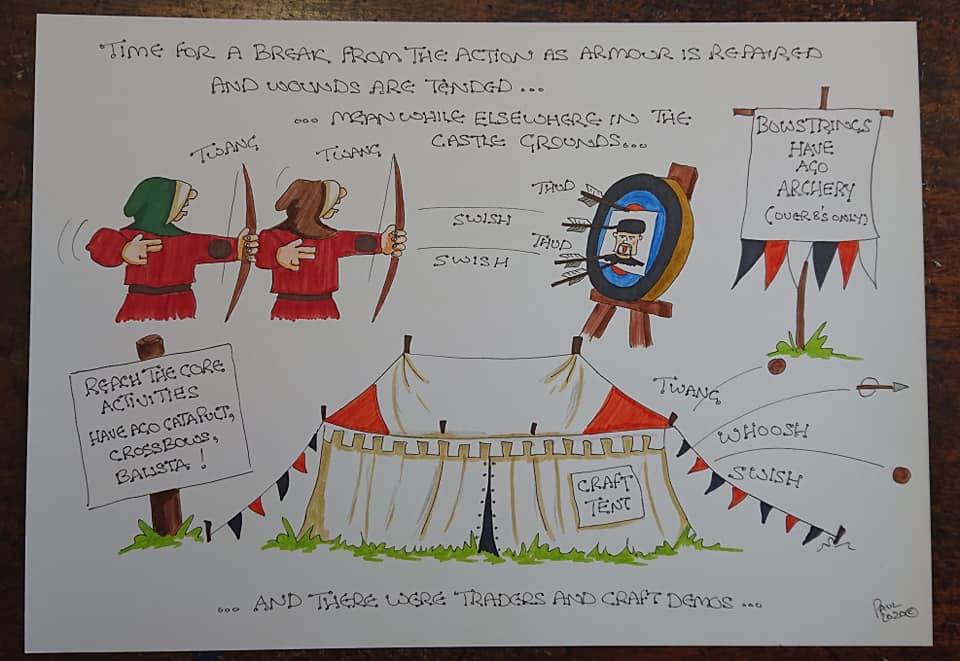 TIME FOR A BREAK FROM THE ACTION AS ARMOUR IS REPAIRED
AND WOUNDS ARE TENDED ...
... MEANWHILE ELSEWHERE IN THE
CASTLE GROUNDS...
TWANG
TWANG
THUD
SWISH
THUD
SWISH
BOWSTRINGS
HAVE
AGO
ARCHERY
(OVER 8'S ONLY)
REACH THE CORE
ACTIVITIES
HAVE AGO CATAPULT,
CROSSBOWS,
BALISTA !
CRAFT
TENT
TWANG
WHOOSH
SWISH
... AND THERE WERE TRADERS AND CRAFT DEMOS ...
PAUL
2020©